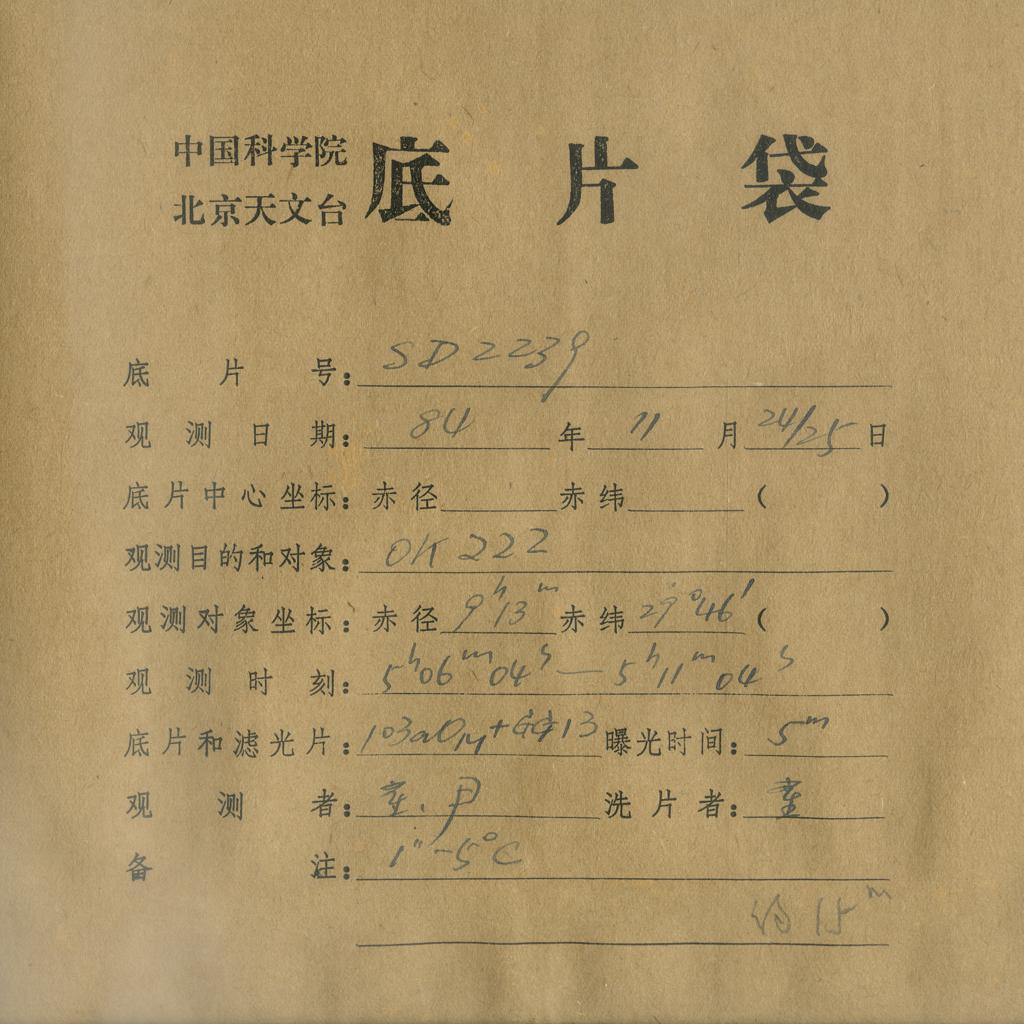 中国科学院
北京天文台
底片袋
底片号：SD2239
观测日期：84年11月24/25日
底片中心坐标：赤径 赤纬 （ ）
观测目的和对象：OK 222
观测对象坐标：赤径 9ʰ13ᵐ 赤纬 29°46′（ ）
观测时刻：5ʰ06ᵐ04ˢ — 5ʰ11ᵐ04ˢ
底片和滤光片：103aO + GG13 曝光时间：5ᵐ
观测者：尹
洗片者：
备注：1″ -5°C
约 15ᵐ